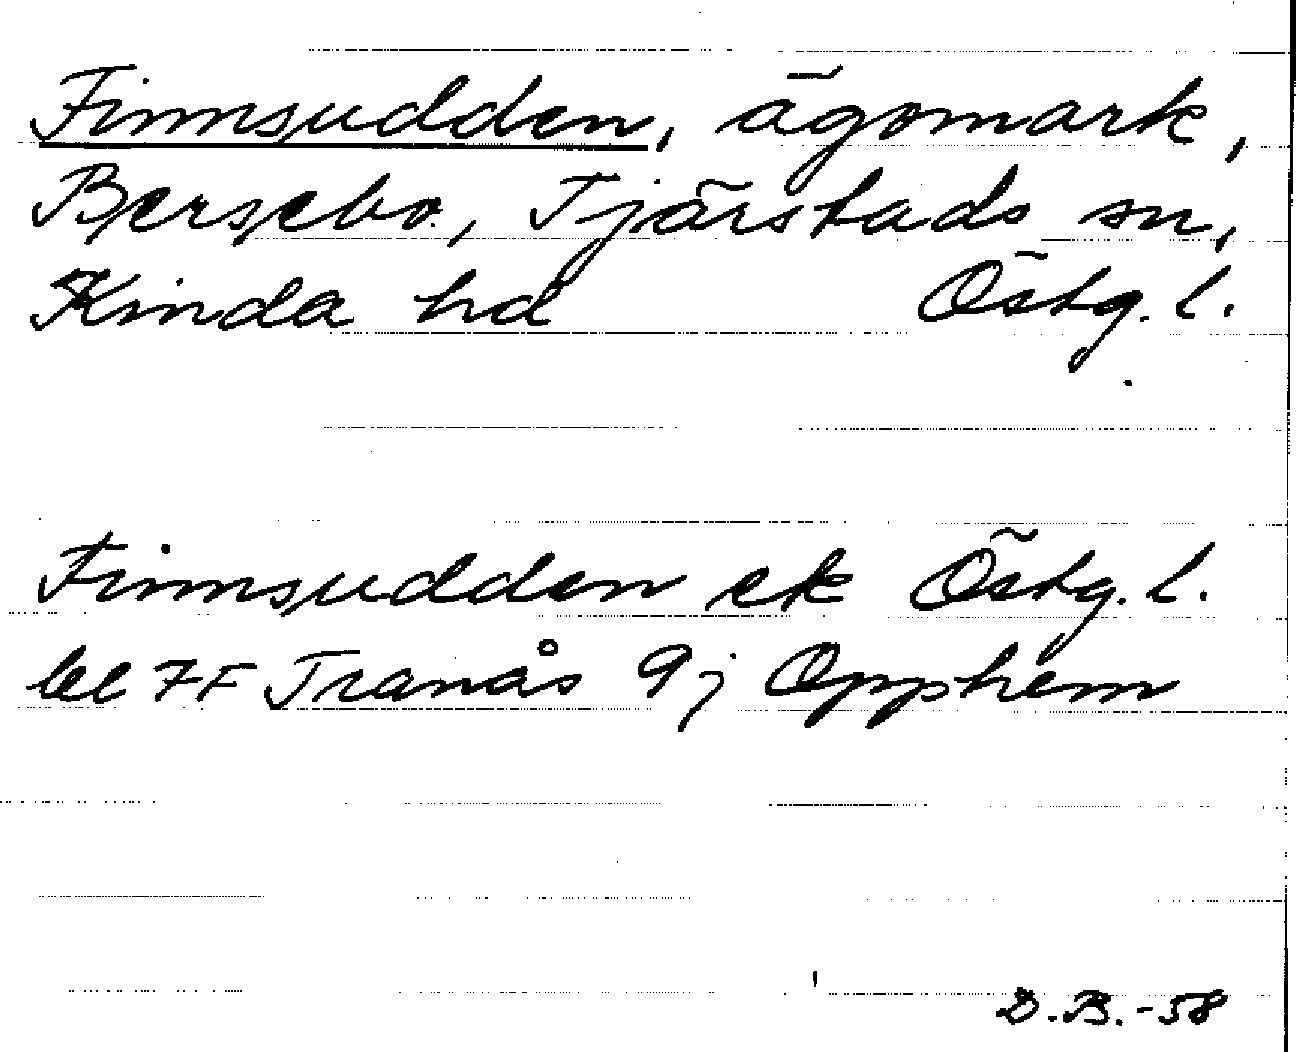 Finnsudden, ägomark,
Bersebo, Tjärstads sn,
Kinda hd Östg. l.
Finnsudden ek Östg. l.
bl 7F Tranås 9j Opphem
D.B.-58